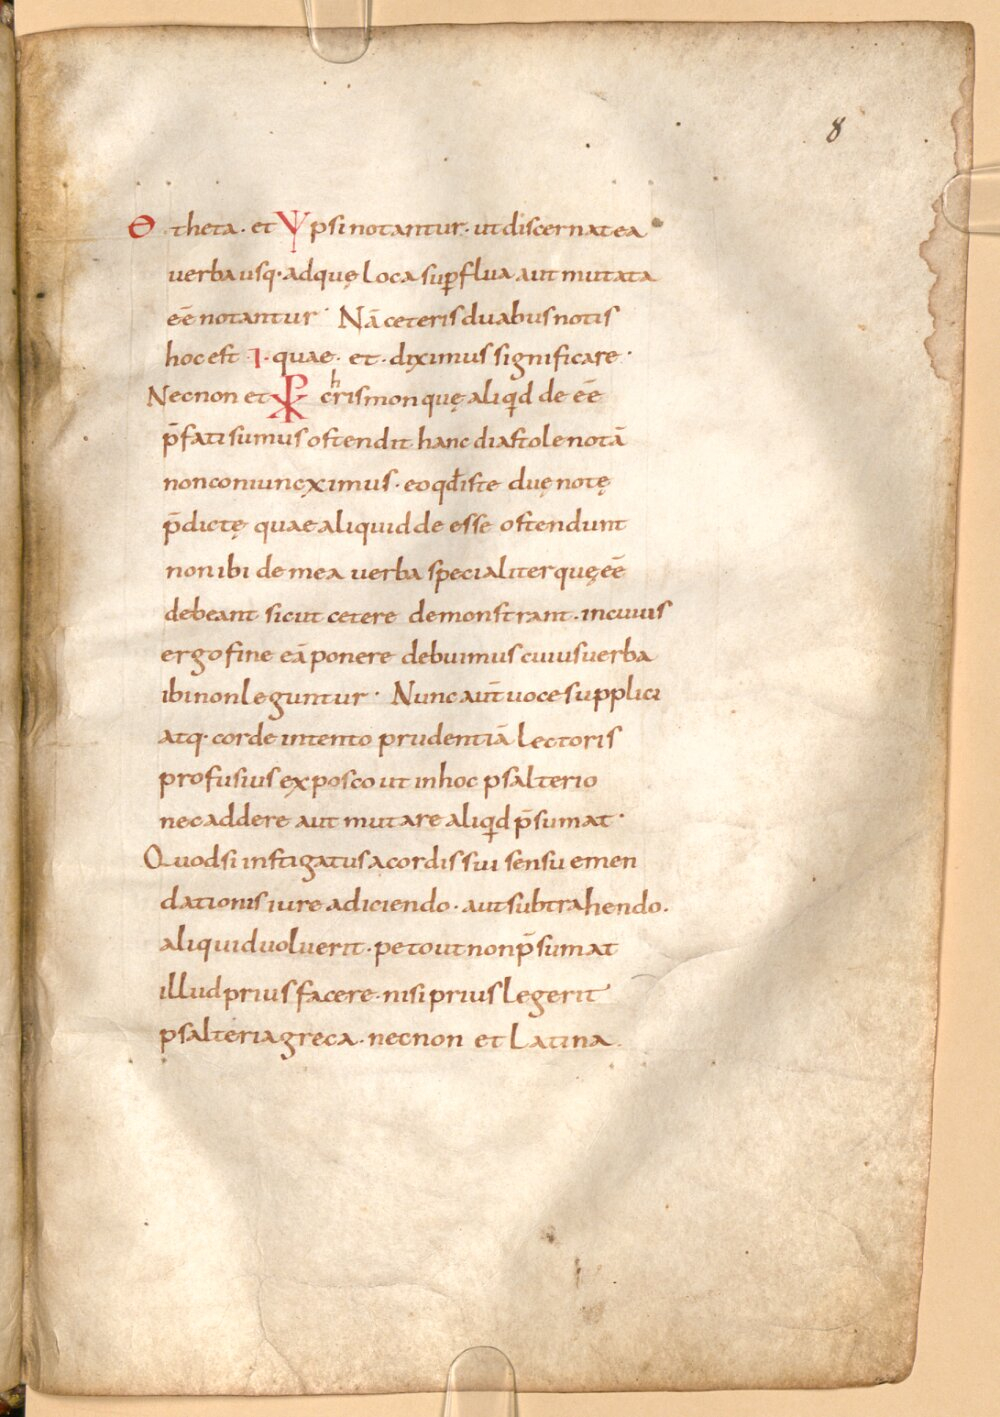 8
Θ theta · et Ψ psi notantur · ut discernat ea
verba usq· adquę loca sup̄flua aut mutata
eē notantur · Nā ceteris duabus notis
hoc est ·I· quae · et · diximus significare ·
Necnon et ⳩ chrismon quę aliqid de eē
p̄fati sumus ostendit hanc diastole notā
non coniuncximus · eo qđ iste duę notę
p̄dictę quae aliquid de esse ostendunt
non ibi de mea verba specialiter quę eē
debeant sicut cetere demonstrant · in cuius
ergo fine eā ponere debuimus cuius verba
ibi non leguntur · Nunc aūt voce supplici
atq· corde intento prudentiā lectoris
profusius exposco ut in hoc psalterio
nec addere aut mutare aliqid p̄sumat ·
Quod si instigatus a cordis sui sensu emen
dationis iure adiciendo · aut subtrahendo ·
aliquid voluerit · peto ut non p̄sumat
illud prius facere · nisi prius legerit
psalteria greca · necnon et Latina ·